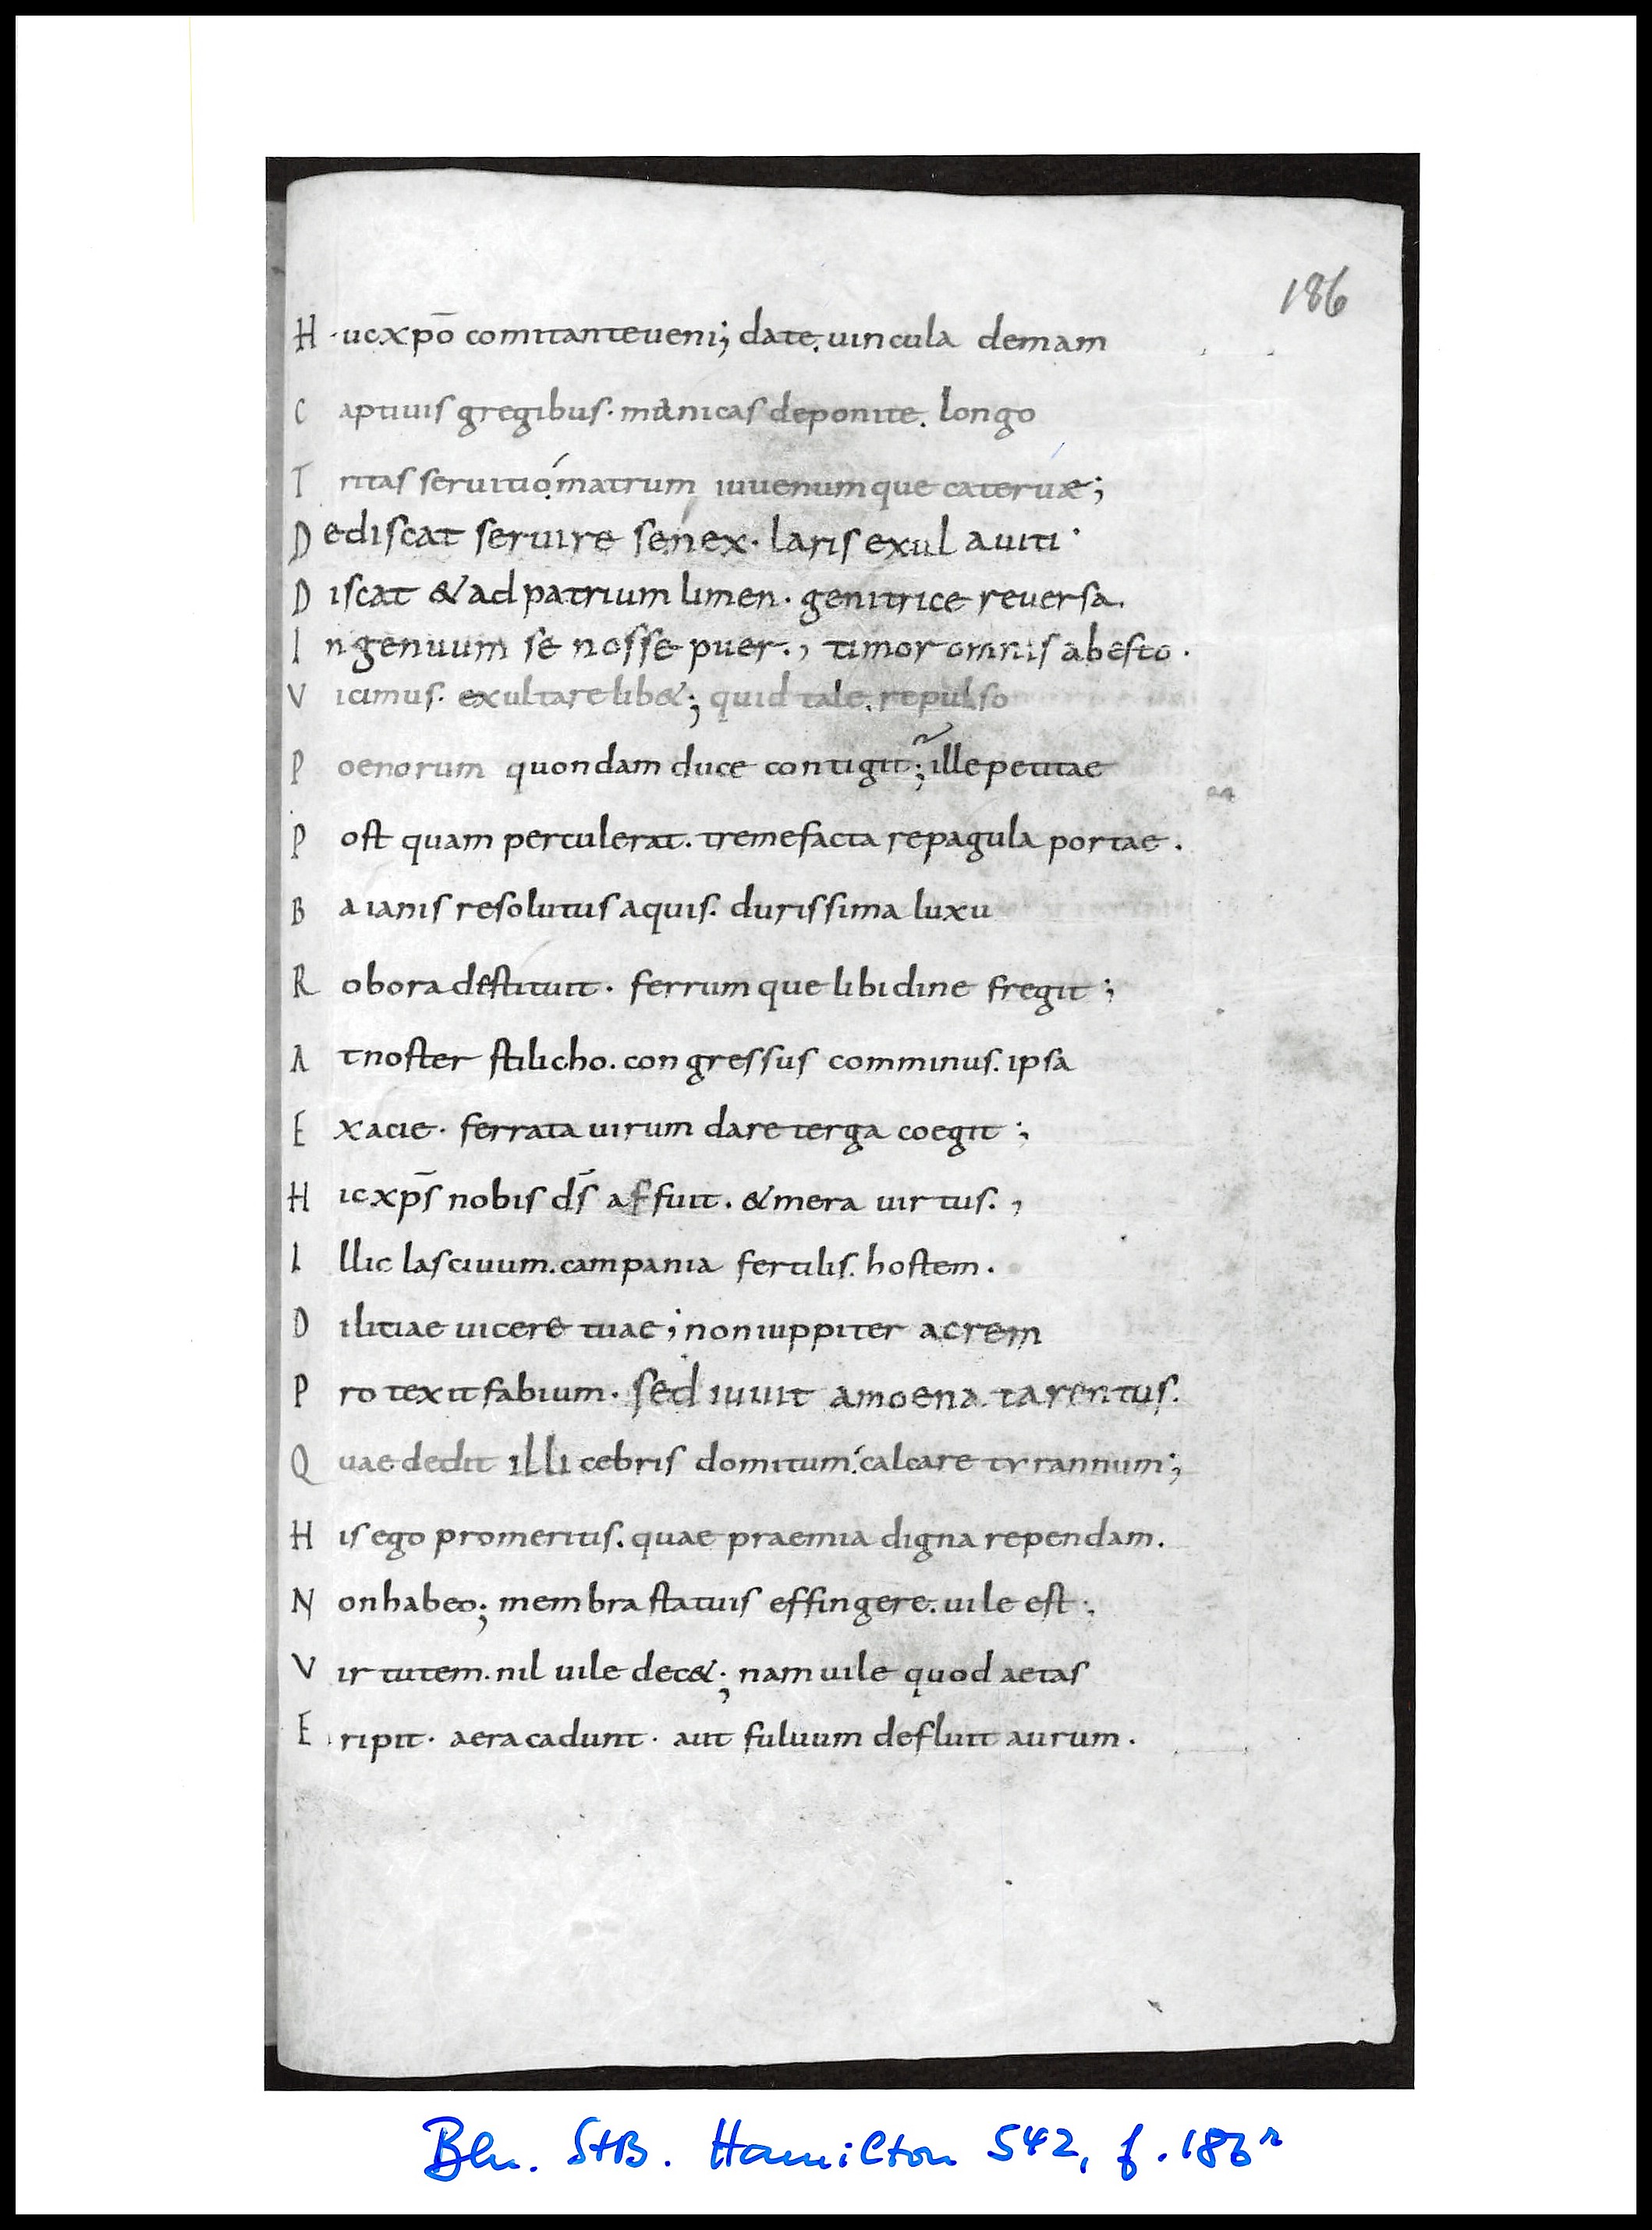 186
H ucxp̄o comitante ueni; date. uincula demam
C aptiuis gregibus. manicas deponite. longo
T ritas seruitio. matrum iuuenumque cateruæ;
D ediscat seruire senex. laris exul auiti.
D iscat & ad patrium limen. genitrice reuersa.
I ngenuum se nosse puer., timor omnis abesto.
V icimus. exultare lib&; quid tale. repulso
P oenorum quondam duce contigit; ille petitae
P ost quam perculerat. tremefacta repagula portae.
B aianis resolutus aquis. durissima luxu
R obora destituit. ferrum que libidine fregit;
A t noster stilicho. congressus comminus. ipsa
E x acie. ferrata uirum dare terga coegit;
H ic xp̄s nobis d̄s affuit. & mera uirtus.,
I llic lasciuum. campania fertilis. hostem.
D ilitiae uicere tuae; non iuppiter acrem
P rotexit fabium. sed iuuit amoena. tarentus.
Q uae dedit illicebris domitum. calcare tyrannum;
H is ego pro meritis. quae praemia digna rependam.
N on habeo; membra statuis effingere. uile est;
V irtutem. nil uile dec&; nam uile quod aetas
E ripit. aera cadunt. aut fuluum defluit aurum.
Bln. StB. Hamilton 542, f. 186r